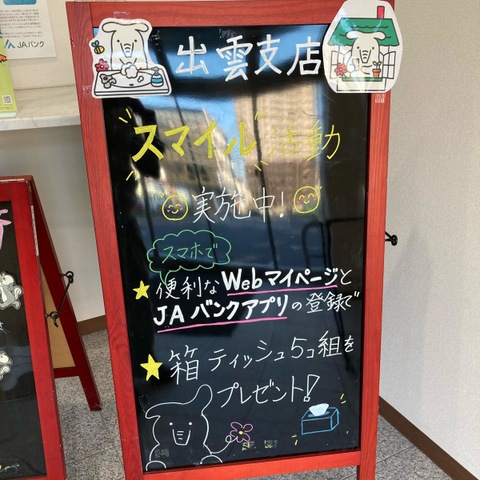 JAバンク
出雲支店
"スマイル"活動
実施中!
スマホで
便利なWebマイページと
JAバンクアプリの登録で
箱ティッシュ5コ組を
プレゼント!